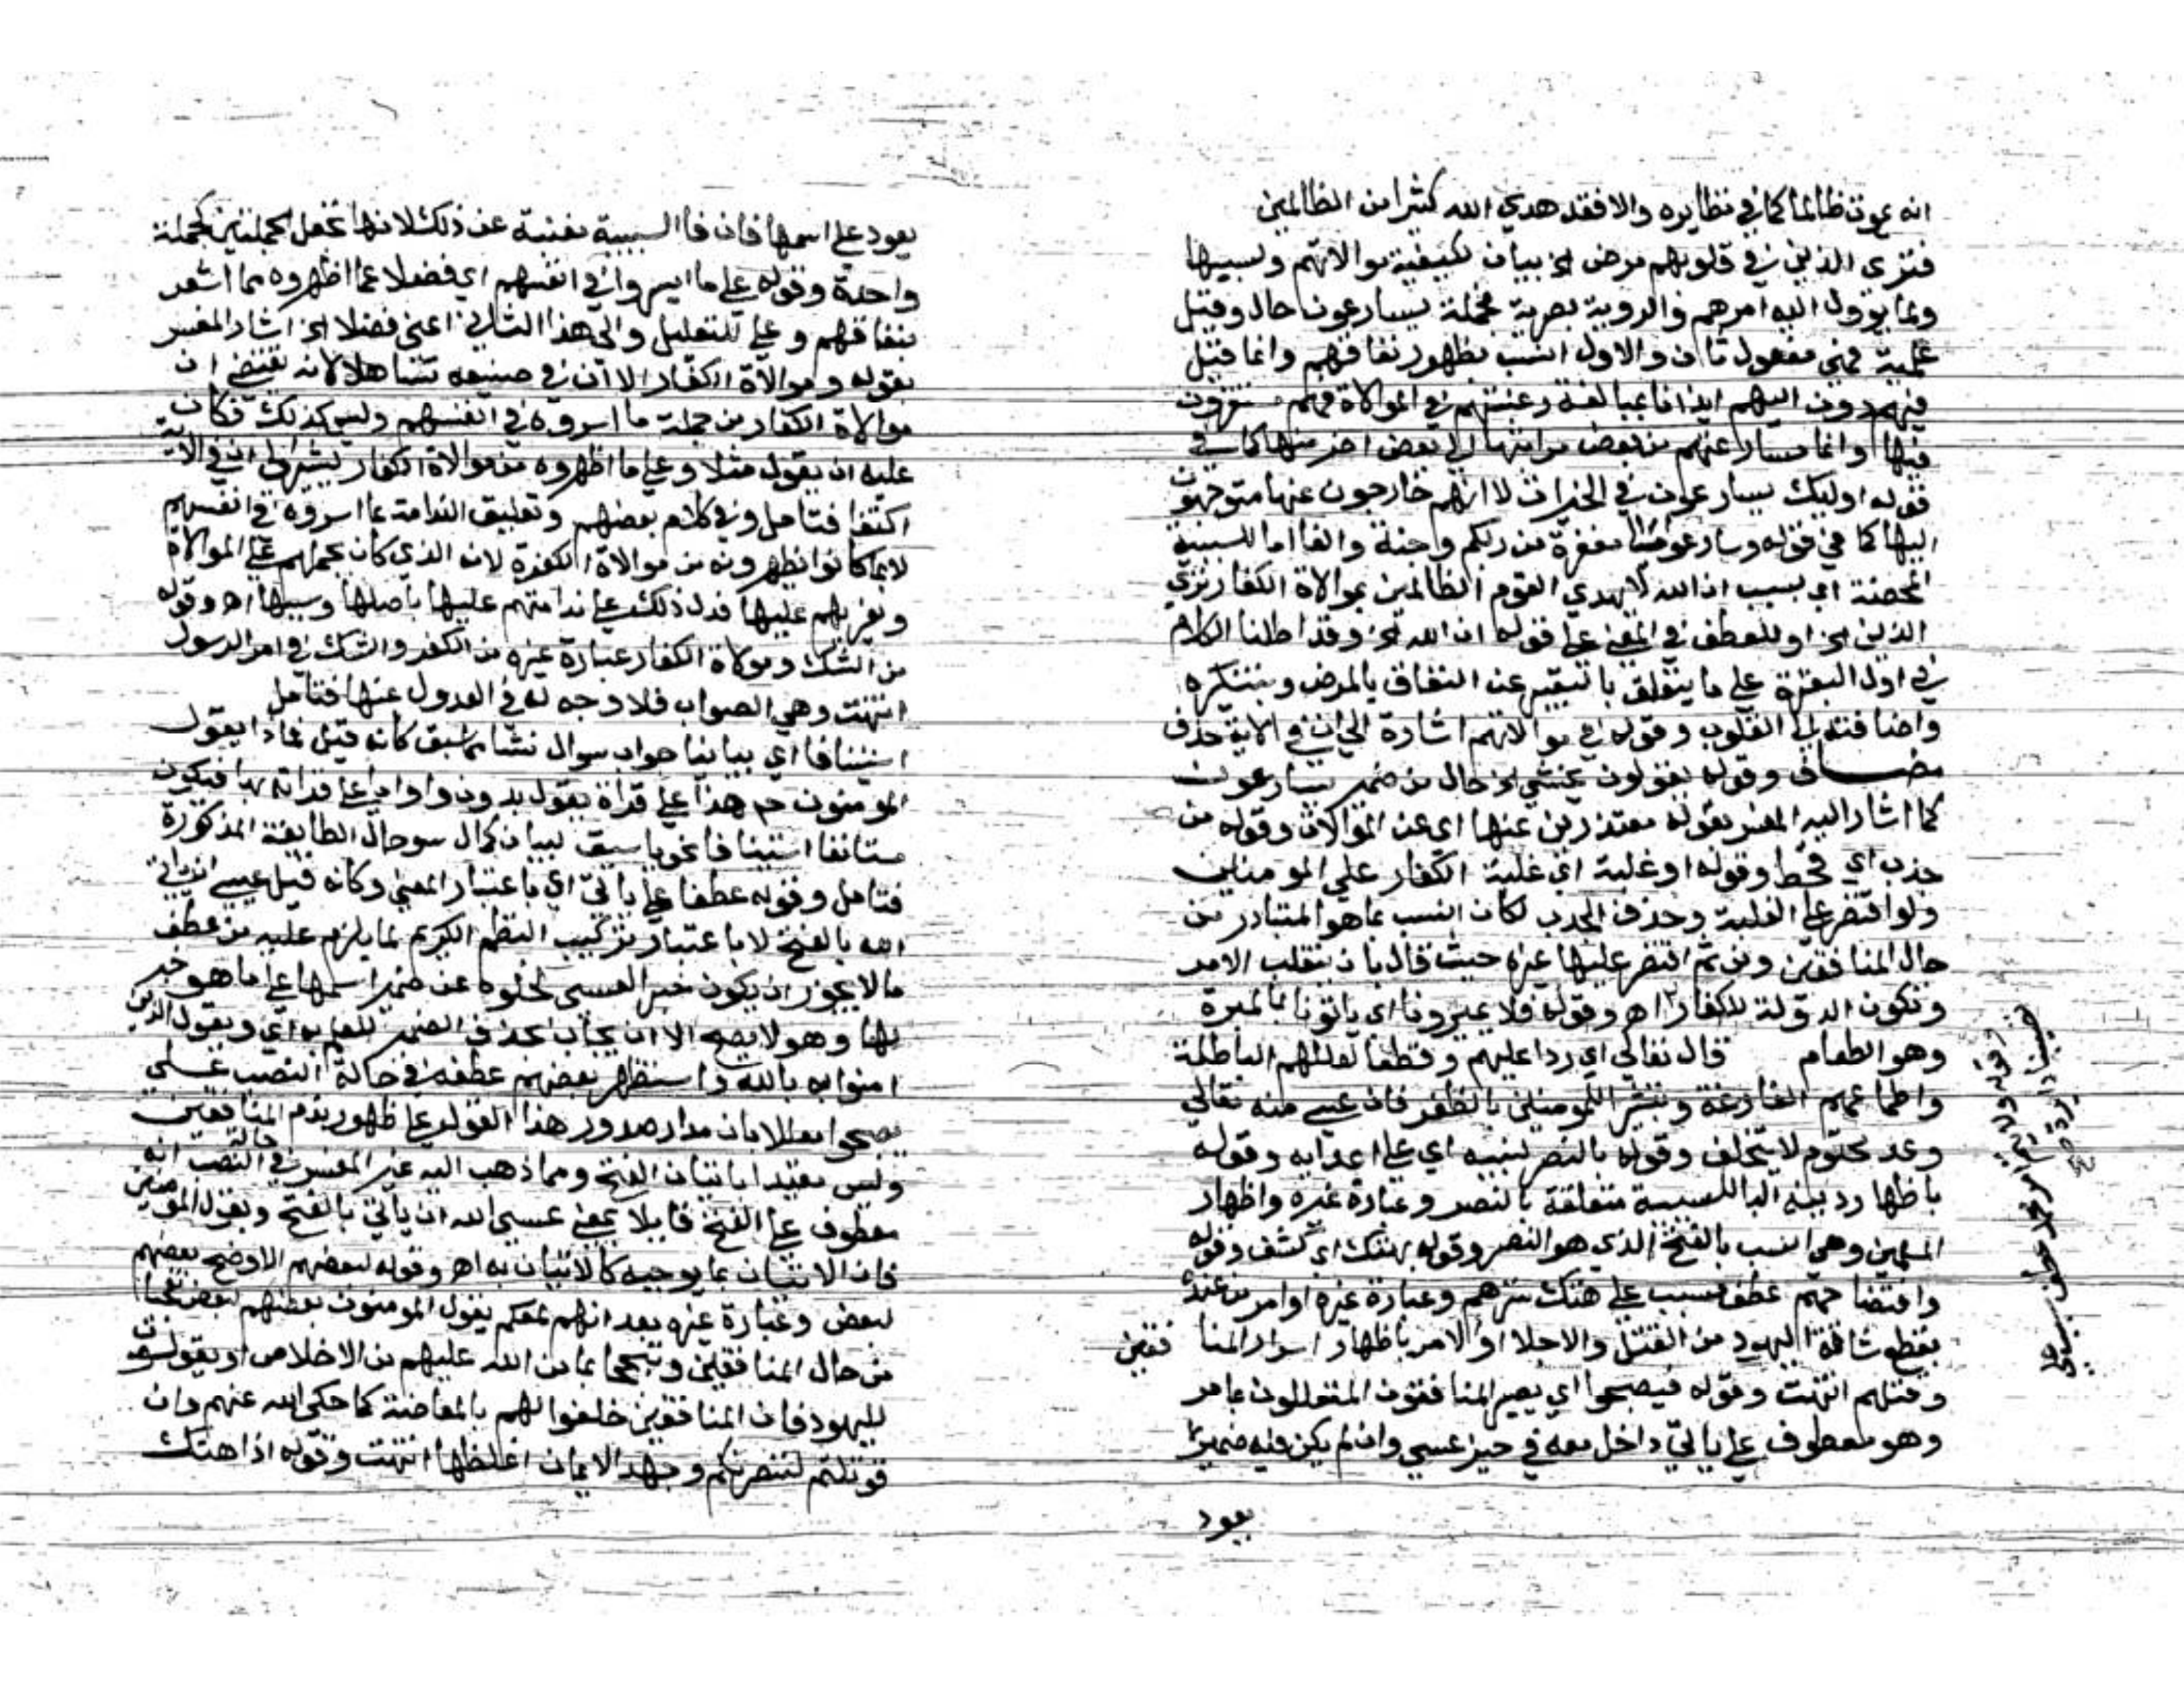 انه يموت ظالما كما في نظايره والا فقد هدي الله كثيرا من الظالمين
فتري الذين في قلوبهم مرض الخ بيان لكيفية موالاتهم ولسببها
وبما يوول اليه امرهم والروية بصرية فجملة يسارعون حال وقيل
علمية فهي مفعول ثان والاول انسب بظهور نفاقهم وانما قيل
فيهم دون اليهم ايذانا بمبالغة رغبتهم في الموالاة فهم مستقرون
فيها وانما مسارعتهم من بعض مراتبها الي بعض اخر منها كما في
قوله اوليك يسارعون في الخيرات لا انهم خارجون عنها متوجهون
اليها كما في قوله وسارعوا الي مغفرة من ربكم وجنة والفا اما للسببية
المحضة اي بسبب ان الله لا يهدي القوم الظالمين بموالاة الكفار تري
الذين الخ او للعطف في المعني علي قوله ان الله الخ وقد اطلنا الكلام
في اول البقرة علي ما يتعلق بالتعبير عن النفاق بالمرض وبتنكيره
واضافته الي القلوب وقوله في موالاتهم اشارة الي ان في الاية حذف
مضاف وقوله يقولون نخشي الخ حال من ضمير يسارعون
كما اشار اليه المفسر بقوله معتذرين عنها اي عن الموالاة وقوله من
جدب اي قحط وقوله او غلبة اي غلبة الكفار علي المومنين
ولو اقتصر علي الغلبة وحذف الجدب لكان انسب بما هو المتبادر من
حال المنافقين ومن ثم اقتصر عليها غيره حيث قال بان ينقلب الامر
وتكون الدولة للكفار اهـ وقوله فلا يميرونا اي ياتونا بالميرة
وهو الطعام قال تعالي اي ردا عليهم وقطعا لعللهم الباطلة
واطماعهم الفارغة وتبشر للمومنين بالظفر فان عسي منه تعالي
وعد محتوم لا يتخلف وقوله بالنصر لنبيه اي علي اعدايه وقوله
باظهار دينه البا للسببية متعلقة بالنصر وعبارة غيره واظهار
المسلمين وهي انسب بالفتح الذي هو النصر وقوله بهتك اي كشف وقوله
وافتضاحهم عطف مسبب علي هتك سترهم وعبارة غيره او امر من عنده
بقطع شافة اليهود من القتل والاجلا او الامر باظهار اسرار المنافقين
وقتلهم انتهت وقوله فيصبحوا اي يصير المنافقون المتعللون بما مر
وهو معطوف علي ياتي داخل معه في حيز عسي وان لم يكن فيه ضمير
يعود
يعود علي اسمها فان فا السببية مغنية عن ذلك لانها تجعل الجملتين كجملة
واحدة وقوله علي ما اسروا في انفسهم اي فضلا عما اظهروه مما اشعر
بنفاقهم وعلي للتعليل والي هذا الثاني اعني فضلا الخ اشار المفسر
بقوله وموالاة الكفار الا ان في صنيعه تساهلا لانه يقتضي ان
موالاة الكفار من جملة ما اسروه في انفسهم وليس كذلك فكان
عليه ان يقول مثلا وعلي ما اظهروه من موالاة الكفار ليشير الي ان في الاية
اكتفا فتامل وفي كلام بعضهم وتعليق الندامة بما اسروه في انفسهم
لا بما كانوا يظهرونه من موالاة الكفرة لانه الذي كان يحملهم علي الموالاة
ويغريهم عليها فدل ذلك علي ندامتهم عليها باصلها وسببها اهـ وقوله
من الشك وموالاة الكفار عبارة غيره من الكفر والشك في امر الرسول
انتهت وهي الصواب فلا وجه له في العدول عنها فتامل
استينافا اي بيانيا جواب سوال نشا مما سبق كانه قيل فماذا يقول
المومنون ح هذا علي قراة يقول بدون واو اما علي قراته بها فيكون
مستانفا استينافا نحويا سيق لبيان كمال سو حال الطايفة المذكورة
فتامل وقوله عطفا علي ياتي اي باعتبار المعني وكانه قيل عسي ان ياتي
الله بالفتح لا باعتبار تركيب النظم الكريم لما يلزم عليه من عطف
ما لا يجوز ان يكون خبرا لعسي لخلوه عن ضمير اسمها علي ما هو خبر
لها وهو لا يصح الا ان يجاب بحذف الضمير للعلم به اي ويقول الذين
امنوا به بالله واستظهر بعضهم عطفه في حالة النصب علي
يصبحوا معللا بان مدار صدور هذا القول علي ظهور ندم المنافقين
وليس مقيدا باتيان الفتح ومما ذهب اليه غير المفسر في حالة النصب انه
معطوف علي الفتح قايلا بمعني عسي الله ان ياتي بالفتح وبقول المومنين
فان الاتيان بما يوجبه كالاتيان به اهـ وقوله لبعضهم الاوضح بعضهم
لبعض وعبارة غيره بعد انهم لمعكم يقول المومنون بعضهم لبعض تعجبا
من حال المنافقين وتبجحا بما من الله عليهم من الاخلاص او يقولونه
لليهود فان المنافقين حلفوا لهم بالمعاضدة كما حكي الله عنهم وان
قوتلتم لننصرنكم وجهد الايمان اغلظها انتهت وقوله اذا هتك